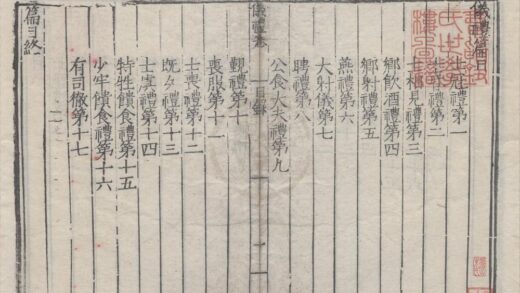 儀禮篇目
士冠禮第一
士昏禮第二
士相見禮第三
鄉飲酒禮第四
鄉射禮第五
燕禮第六
大射儀第七
聘禮第八
公食大夫禮第九
儀禮
目錄
一
覲禮第十
喪服第十一
士喪禮第十二
既夕禮第十三
士虞禮第十四
特牲饋食禮第十五
少牢饋食禮第十六
有司徹第十七
篇目終